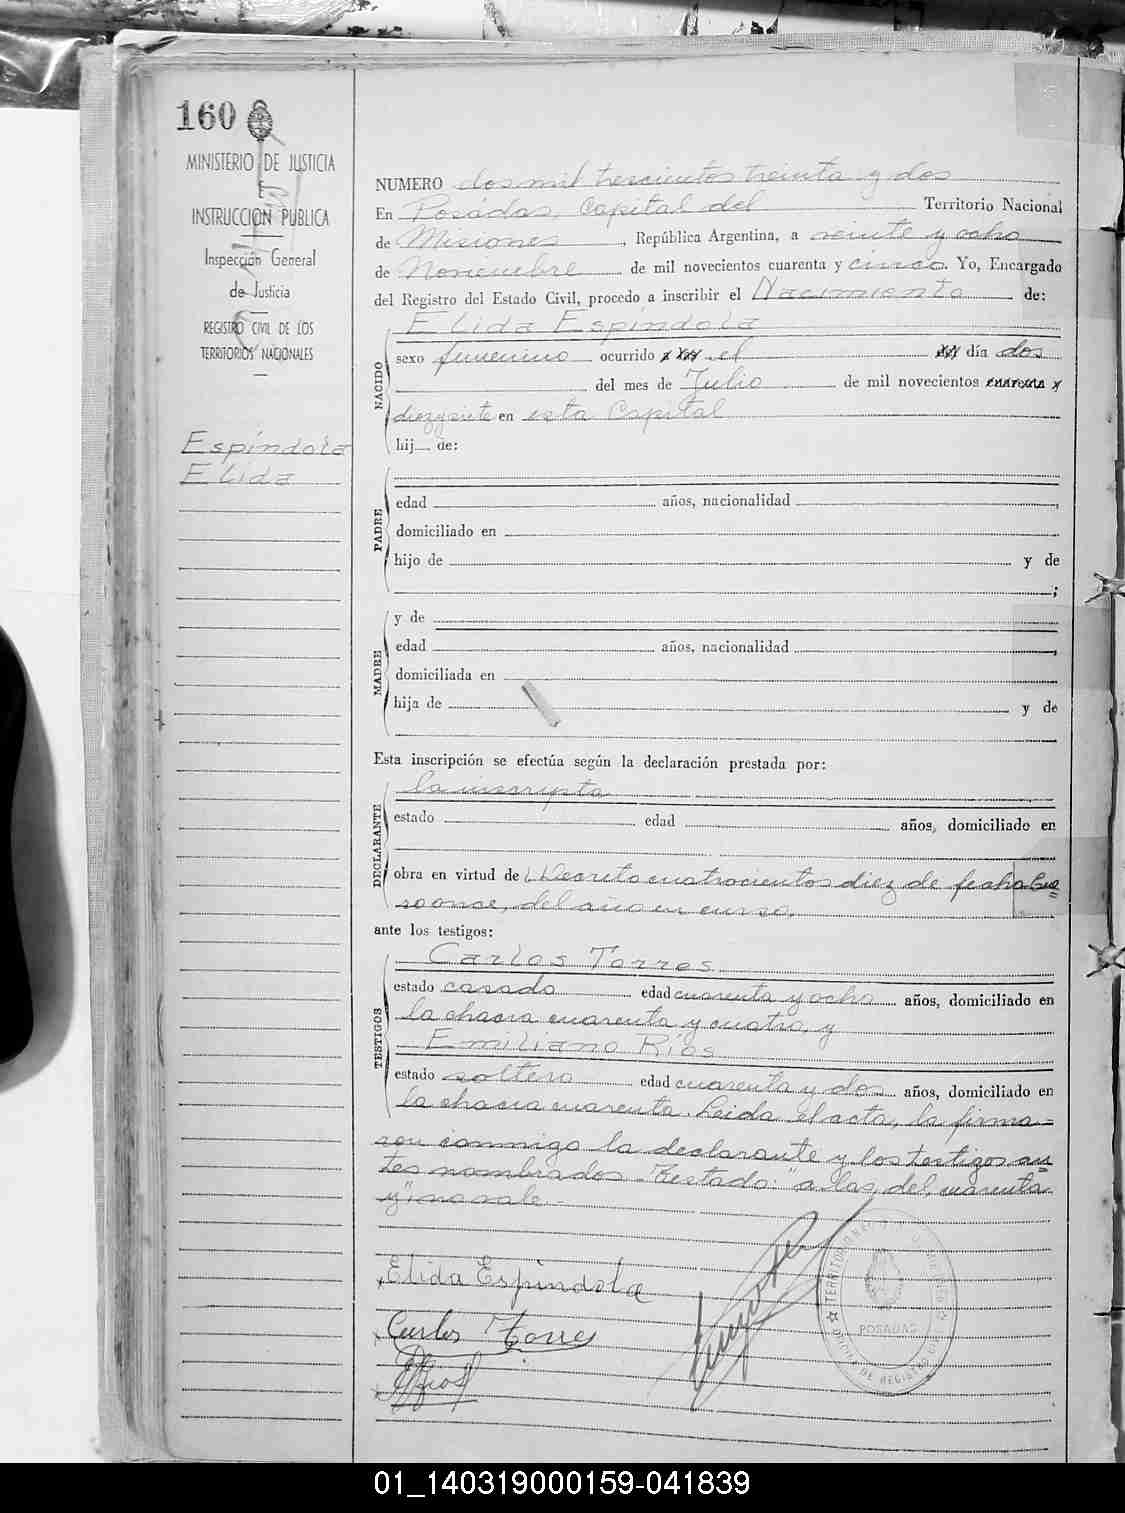 160
MINISTERIO DE JUSTICIA
E
INSTRUCCION PUBLICA
Inspección General
de Justicia
REGISTRO CIVIL DE LOS
TERRITORIOS NACIONALES
Espíndola
Elida
NUMERO dos mil trescientos treinta y dos
En Posadas, Capital del Territorio Nacional
de Misiones, República Argentina, a veinte y ocho
de Noviembre de mil novecientos cuarenta y cinco. Yo, Encargado
del Registro del Estado Civil, procedo a inscribir el Nacimiento de:
NACIDO
Elida Espíndola
sexo femenino ocurrido a las el del día dos
del mes de Julio de mil novecientos cuarenta y
diez y siete en esta Capital
hij de:
PADRE
edad años, nacionalidad ,
domiciliado en
hijo de y de
;
MADRE
y de
edad años, nacionalidad ,
domiciliada en
hija de y de
Esta inscripción se efectúa según la declaración prestada por:
DECLARANTE
la inscripta
estado edad años, domiciliado en
obra en virtud de Decreto cuatrocientos diez de fecha Ene=
ro once, del año en curso,
ante los testigos:
TESTIGOS
Carlos Torres
estado casado edad cuarenta y ocho años, domiciliado en
la chacra cuarenta y cuatro, y
Emiliano Ríos
estado soltero edad cuarenta y dos años, domiciliado en
la chacra cuarenta. Leida el acta, la firma=
ron conmigo la declarante y los testigos an=
tes nombrados. Testado: "a las, del, cuarenta
y" no vale.-
Elida Espindola
Carlos Torres
ERios
POSADAS
01_140319000159-041839